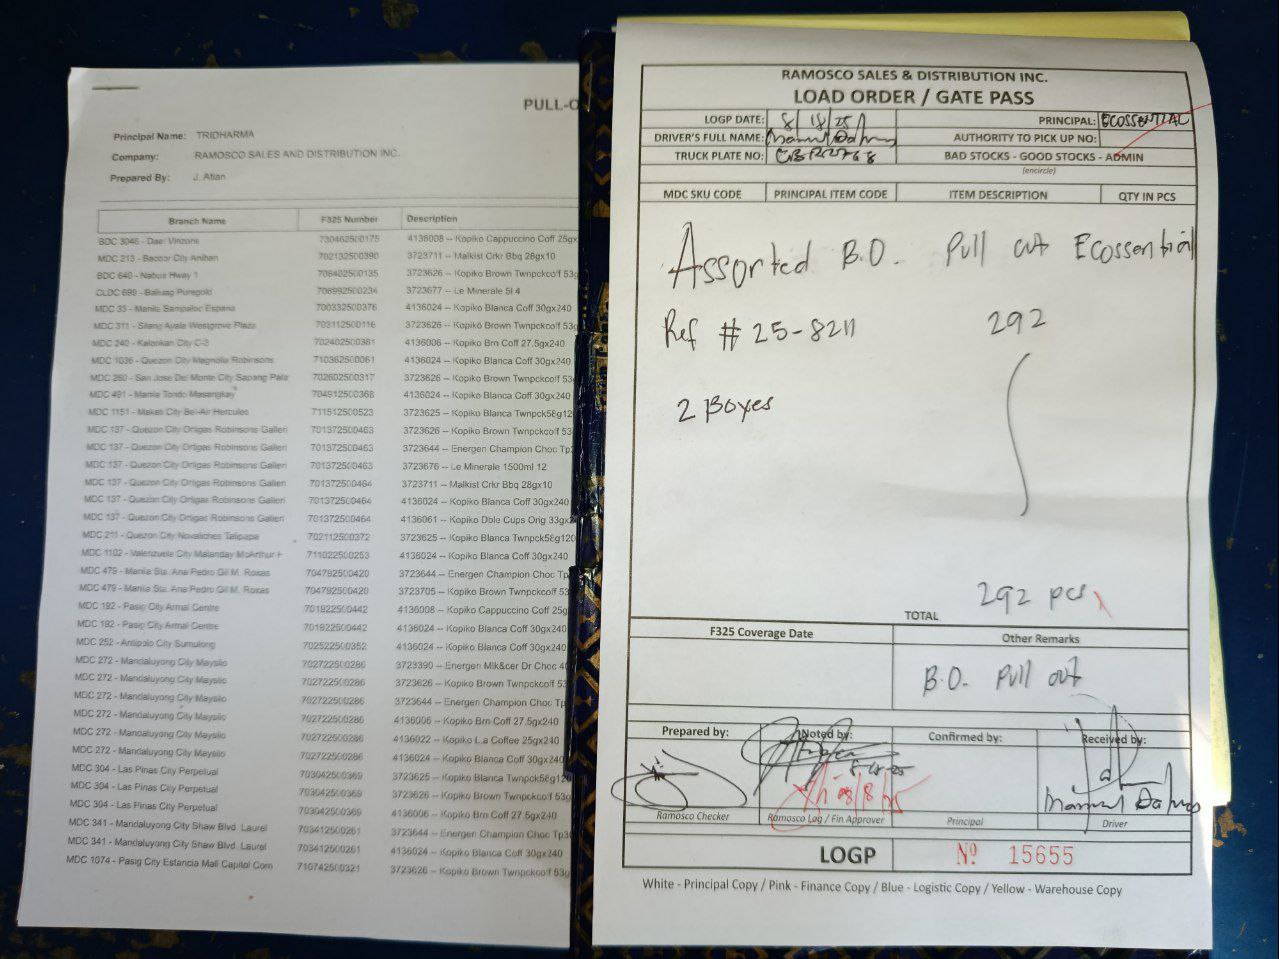 PULL-O
Principal Name: TRIDHARMA
Company: RAMOSCO SALES AND DISTRIBUTION INC.
Prepared By: J. Atian
Branch Name F325 Number Description
BDC 3046 - Dael Vinzons 730462500175 4136008 -- Kopiko Cappuccino Coff 25gx
MDC 213 - Bacoor City Aniban 702132500390 3723711 -- Malkist Crkr Bbq 28gx10
BDC 640 - Nabua Hway 1 706402500135 3723626 -- Kopiko Brown Twnpckcoff 53g
CLDC 699 - Baliuag Puregold 706992500234 3723677 -- Le Minerale 5l 4
MDC 33 - Manila Sampaloc Espana 700332500376 4136024 -- Kopiko Blanca Coff 30gx240
MDC 311 - Silang Ayala Westgrove Plaza 703112500116 3723626 -- Kopiko Brown Twnpckcoff 53g
MDC 240 - Kalookan City C-3 702402500381 4136006 -- Kopiko Brn Coff 27.5gx240
MDC 1036 - Quezon City Magnolia Robinsons 710362500061 4136024 -- Kopiko Blanca Coff 30gx240
MDC 260 - San Jose Del Monte City Sapang Pala 702602500317 3723626 -- Kopiko Brown Twnpckcoff 53
MDC 491 - Manila Tondo Masangkay 704912500368 4136024 -- Kopiko Blanca Coff 30gx240
MDC 1151 - Makati City Bel-Air Hercules 711512500523 3723625 -- Kopiko Blanca Twnpck58g12
MDC 137 - Quezon City Ortigas Robinsons Galleri 701372500463 3723626 -- Kopiko Brown Twnpckcoff 5
MDC 137 - Quezon City Ortigas Robinsons Galleri 701372500463 3723644 -- Energen Champion Choc Tp3
MDC 137 - Quezon City Ortigas Robinsons Galleri 701372500463 3723676 -- Le Minerale 1500ml 12
MDC 137 - Quezon City Ortigas Robinsons Galleri 701372500464 3723711 -- Malkist Crkr Bbq 28gx10
MDC 137 - Quezon City Ortigas Robinsons Galleri 701372500464 4136024 -- Kopiko Blanca Coff 30gx240
MDC 137 - Quezon City Ortigas Robinsons Galleri 701372500464 4136061 -- Kopiko Dble Cups Orig 33gx
MDC 211 - Quezon City Novaliches Talipapa 702112500372 3723625 -- Kopiko Blanca Twnpck58g120
MDC 1102 - Valenzuela City Malanday McArthur H 711022500253 4136024 -- Kopiko Blanca Coff 30gx240
MDC 479 - Manila Sta. Ana Pedro Gil M. Roxas 704792500420 3723644 -- Energen Champion Choc Tp
MDC 479 - Manila Sta. Ana Pedro Gil M. Roxas 704792500420 3723705 -- Kopiko Blanca Twnpck
MDC 192 - Pasig City Armal Centre 701922500442 4136008 -- Kopiko Cappuccino Coff 25g
MDC 192 - Pasig City Armal Centre 701922500442 4136024 -- Kopiko Blanca Coff 30gx240
MDC 252 - Antipolo City Sumulong 702522500352 4136024 -- Kopiko Blanca Coff 30gx240
MDC 272 - Mandaluyong City Maysilo 702722500286 3723390 -- Energen Mlk&cer Dr Choc 4
MDC 272 - Mandaluyong City Maysilo 702722500286 3723626 -- Kopiko Brown Twnpckcoff 5
MDC 272 - Mandaluyong City Maysilo 702722500286 3723644 -- Energen Champion Choc Tp
MDC 272 - Mandaluyong City Maysilo 702722500286 4136006 -- Kopiko Brn Coff 27.5gx240
MDC 272 - Mandaluyong City Maysilo 702722500286 4136022 -- Kopiko L.a Coffee 25gx240
MDC 304 - Las Pinas City Perpetual 703042500369 3723625 -- Kopiko Blanca Twnpck58g12
MDC 304 - Las Pinas City Perpetual 703042500369 3723626 -- Kopiko Brown Twnpckcoff 53
MDC 304 - Las Pinas City Perpetual 703042500369 4136006 -- Kopiko Brn Coff 27.5gx240
MDC 341 - Mandaluyong City Shaw Blvd. Laurel 703412500261 3723644 -- Energen Champion Choc Tp3
MDC 341 - Mandaluyong City Shaw Blvd. Laurel 703412500261 4136024 -- Kopiko Blanca Coff 30gx240
MDC 1074 - Pasig City Estancia Mall Capitol Com 710742500321 3723626 -- Kopiko Brown Twnpckcoff 53
RAMOSCO SALES & DISTRIBUTION INC.
LOAD ORDER / GATE PASS
LOGP DATE: 8/18/25 PRINCIPAL: ECOSSENTIAL
DRIVER'S FULL NAME: AUTHORITY TO PICK UP NO:
TRUCK PLATE NO: BAD STOCKS - GOOD STOCKS - ADMIN
(encircle)
MDC SKU CODE PRINCIPAL ITEM CODE ITEM DESCRIPTION QTY IN PCS
Assorted B.O. Pull out Ecossential
Ref # 25-8211 292
2 Boxes
292 pcs
TOTAL
F325 Coverage Date Other Remarks
B.O. Pull out
Prepared by: Noted by: Confirmed by: Received by:
Ramosco Checker Ramosco Log / Fin Approver Principal Driver
LOGP Nº 15655
White - Principal Copy / Pink - Finance Copy / Blue - Logistic Copy / Yellow - Warehouse Copy